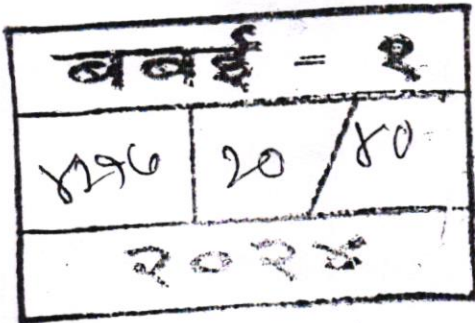 बबई - १
२० / ४०
२०२४